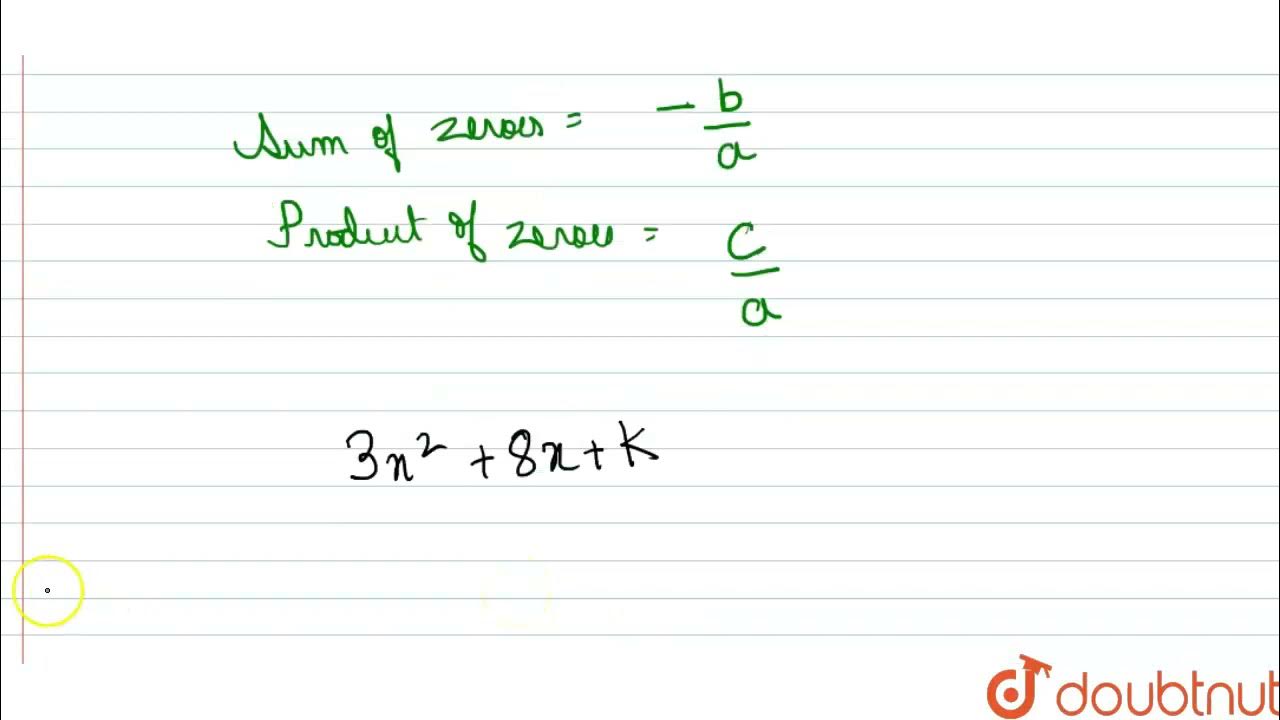 Sum of zeroes = - b/a
Product of zeroes = c/a
3x² + 8x + k
doubtnut